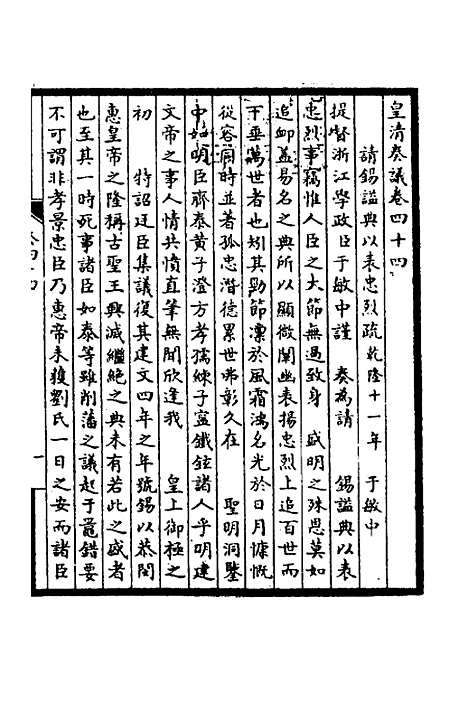 皇清奏議卷四十四
請錫謚典以表忠烈疏乾隆十一年 于敏中
提督浙江學政臣于敏中謹 奏為請 錫謚典以表
忠烈事竊惟人臣之大節無過致身 盛明之殊恩莫如
追卹蓋易名之典所以顯微闡幽表揚忠烈上追百世而
下垂萬世者也矧其勁節凛於風霜鴻名光於日月慷慨
從容同時並著孤忠潛德累世弗彰久在 聖明洞鑒
中如明臣齊泰黃子澄方孝孺練子寧鐵鉉諸人乎明建
文帝之事人情共憤直筆無聞欣逢我 皇上御極之
初 特詔廷臣集議復其建文四年之年號錫以恭閔
惠皇帝之隆稱古聖王興滅繼絕之典未有若此之盛者
也至其一時死事諸臣如泰等雖削藩之議起于鼂錯要
不可謂非孝景忠臣乃惠帝未獲劉氏一日之安而諸臣
一